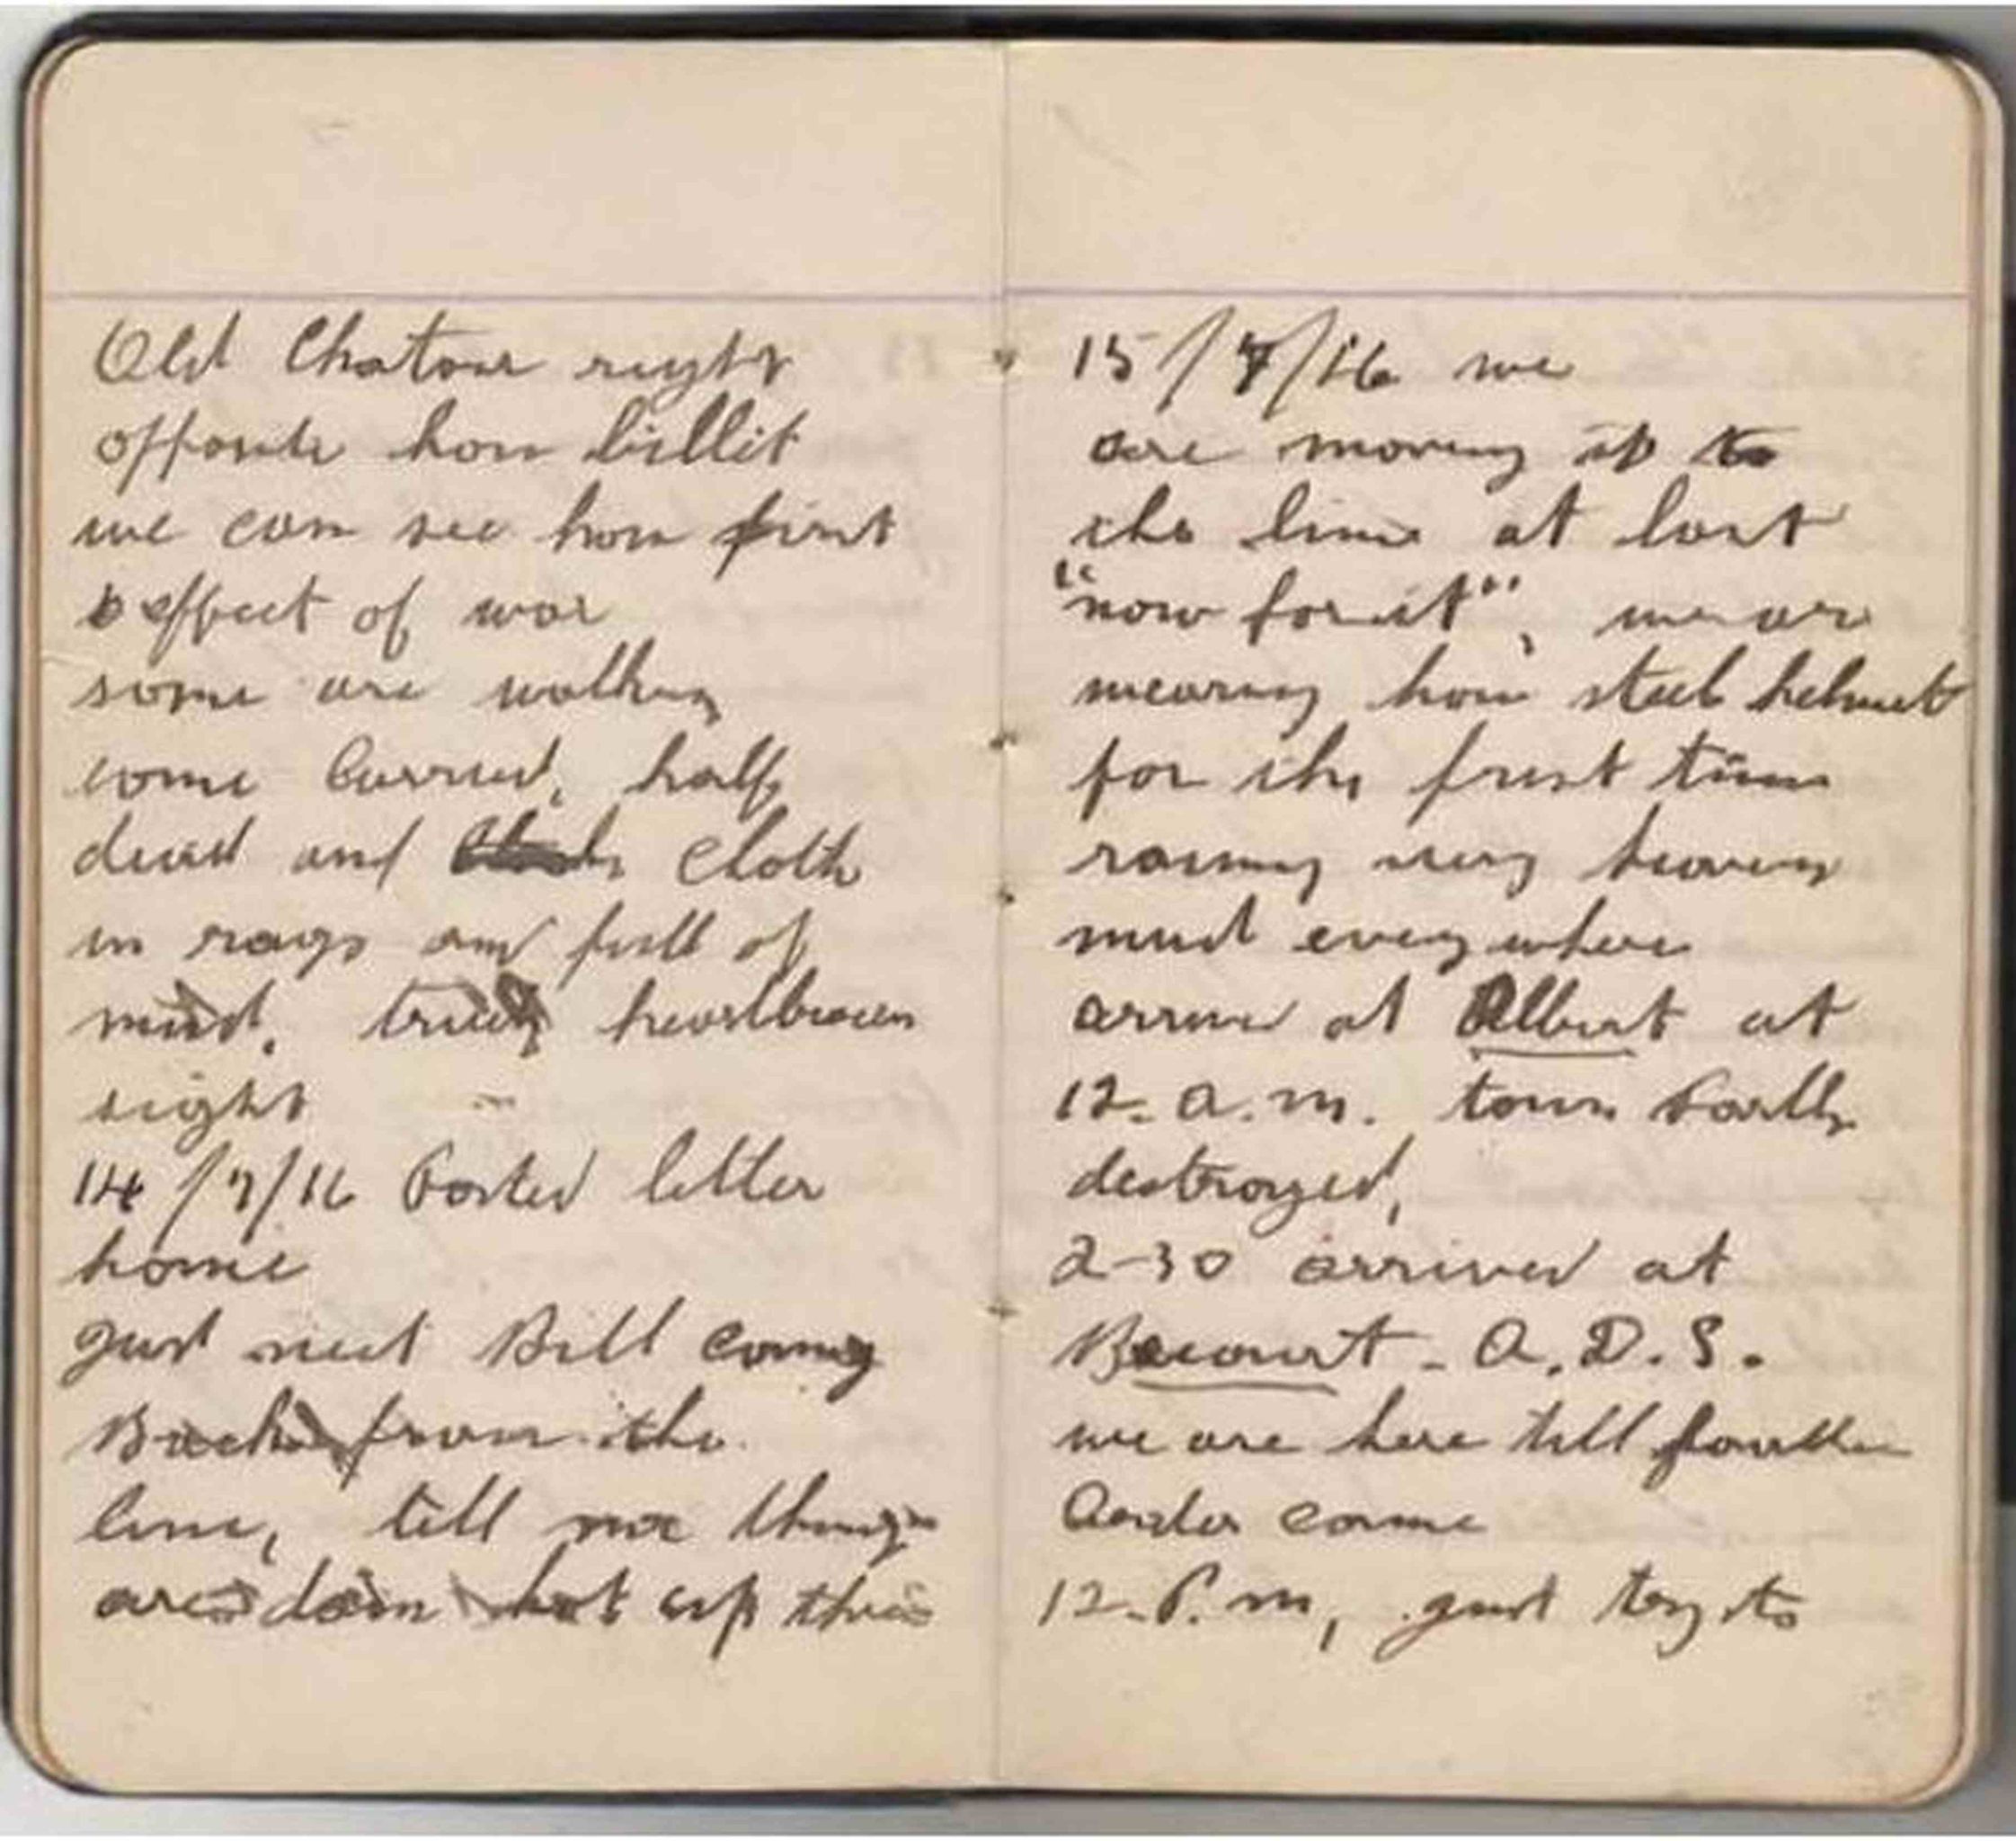 Old Chatour right
opposite hour billit
we can see hour first
effect of war
some are walking
some Carried, half
dead and cloth
in rags and full of
mud, truly heartbrocen
sight
14/7/16 Posted letter
home
Just met Bill coming
Back from the
line, tell me things
are dam hot up there
15/7/16 we
are moving up to
the line at last
"now for it", we are
wearing hour steel helmet
for the first time
raining very heavey
mud every where
arrive at Albert at
12. a.m. town Partly
destroyed,
2-30 arrived at
Becourt - A.D.S.
we are here till fourther
Aorder come
12.P.m, just try to